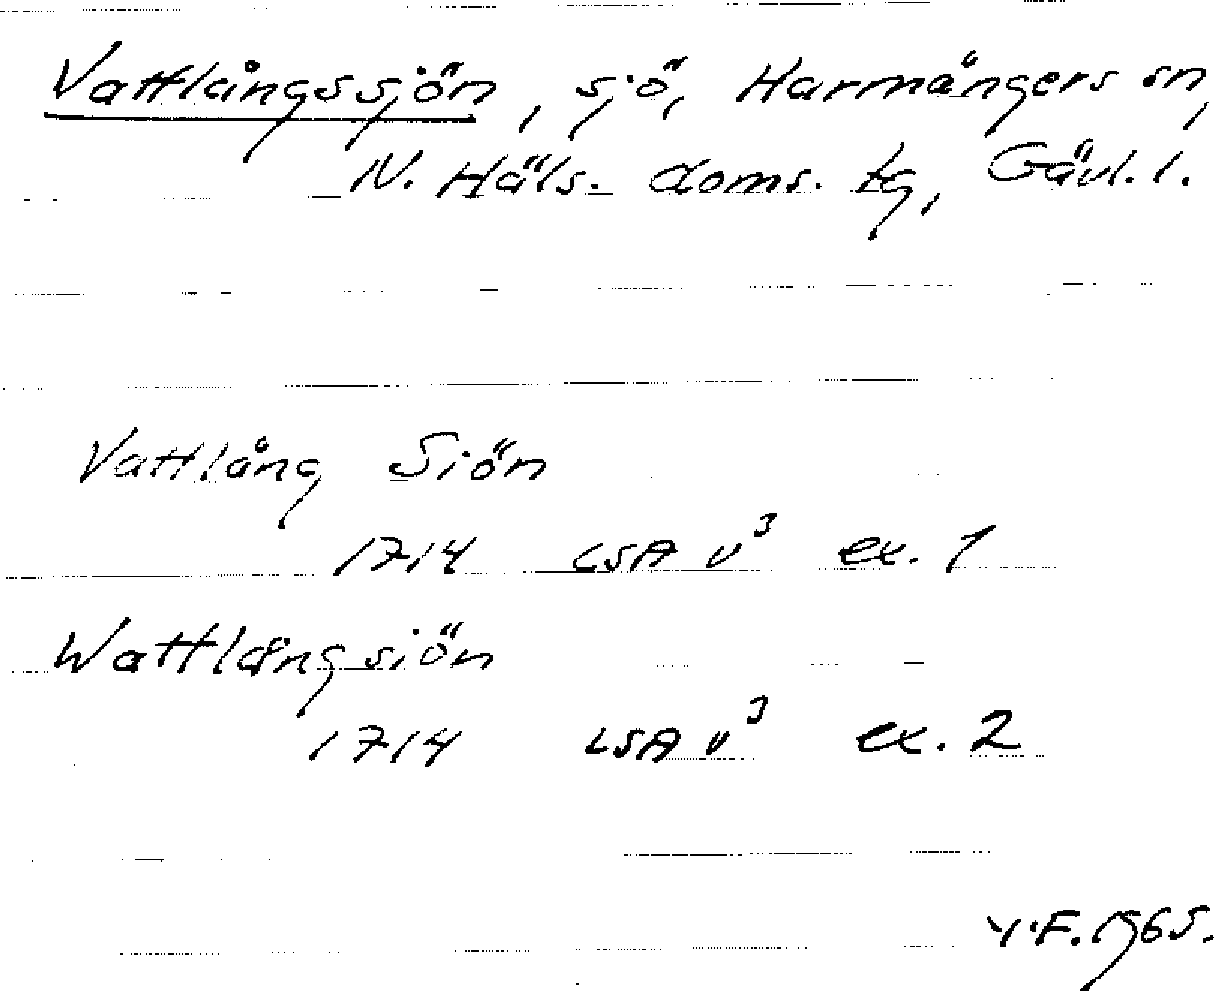 Vattlångssjön, sjö, Harmångers sn,
N. Häls. doms. tg, Gävl. l.
Vattlång Siön
1714 LSA v³ ex. 1
Wattlångsiön
1714 LSA v³ ex. 2
Y.F. 1965.